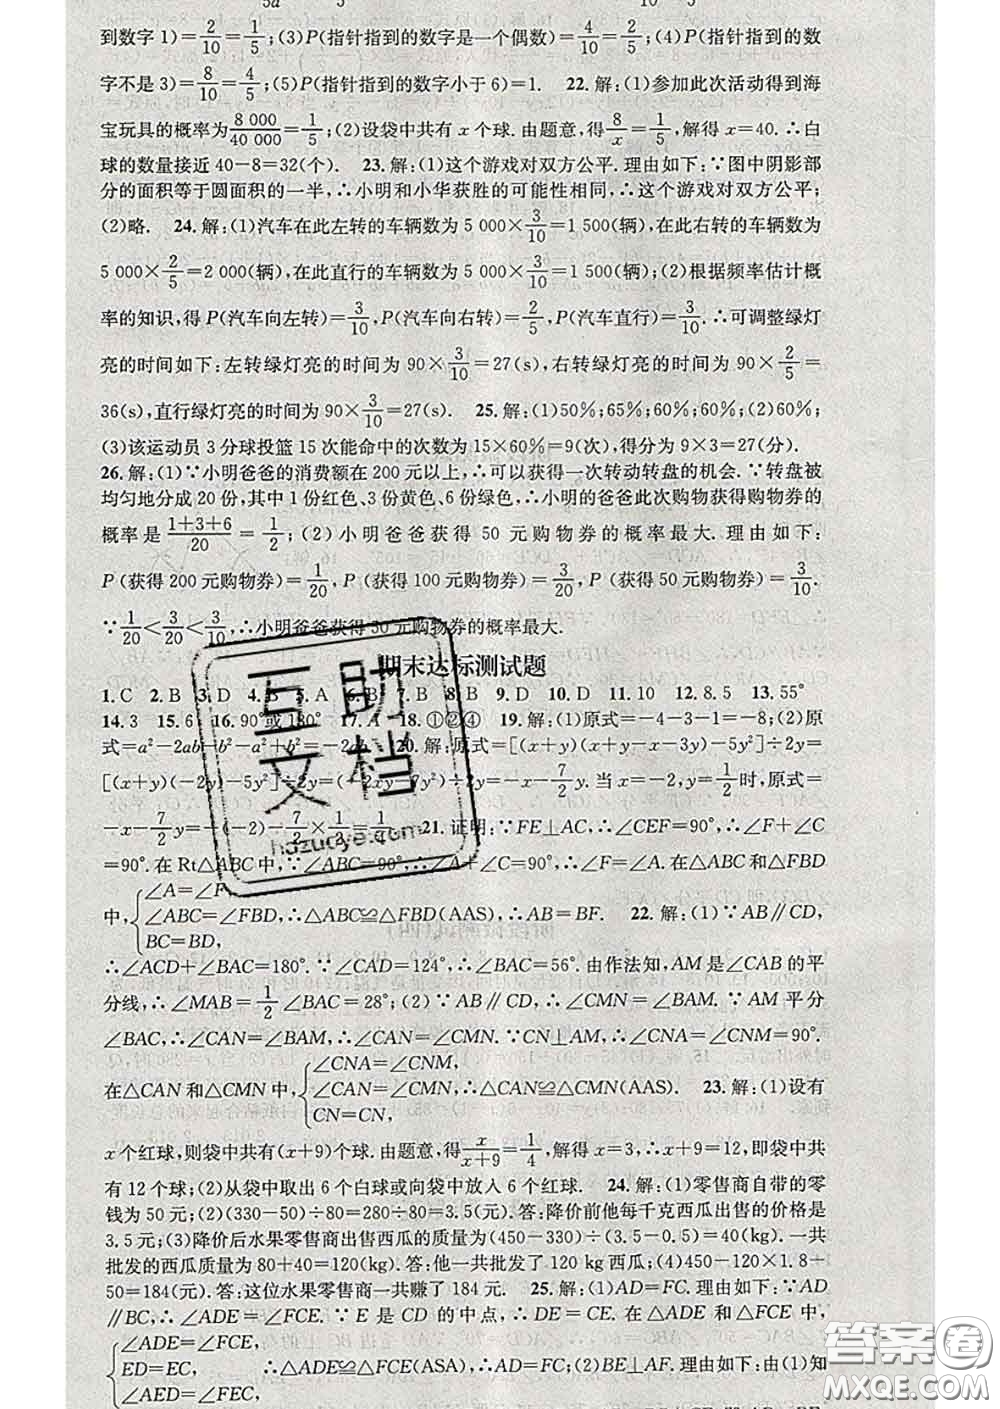 到数字1)=2/10=1/5;(3)P(指针指到的数字是一个偶数)=4/10=2/5;(4)P(指针指到的数
字不是3)=8/10=4/5;(5)P(指针指到的数字小于6)=1. 22.解:(1)参加此次活动得到海
宝玩具的概率为8 000/40 000=1/5;(2)设袋中共有x个球.由题意,得8/x=1/5,解得x=40.∴白
球的数量接近40-8=32(个). 23.解:(1)这个游戏对双方公平.理由如下:∵图中阴影部
分的面积等于圆面积的一半,∴小明和小华获胜的可能性相同,∴这个游戏对双方公平;
(2)略. 24.解:(1)汽车在此左转的车辆数为5 000×3/10=1 500(辆),在此右转的车辆数为
5 000×2/5=2 000(辆),在此直行的车辆数为5 000×3/10=1 500(辆);(2)根据频率估计概
率的知识,得P(汽车向左转)=3/10,P(汽车向右转)=2/5,P(汽车直行)=3/10.∴可调整绿灯
亮的时间如下:左转绿灯亮的时间为90×3/10=27(s),右转绿灯亮的时间为90×2/5=
36(s),直行绿灯亮的时间为90×3/10=27(s). 25.解:(1)50%;65%;60%;60%;(2)60%;
(3)该运动员3分球投篮15次能命中的次数为15×60%=9(次),得分为9×3=27(分).
26.解:(1)∵小明爸爸的消费额在200元以上,∴可以获得一次转动转盘的机会.∵转盘被
均匀地分成20份,其中1份红色、3份黄色、6份绿色,∴小明的爸爸此次购物获得购物券的
概率是(1+3+6)/20=1/2;(2)小明爸爸获得50元购物券的概率最大.理由如下:
P(获得200元购物券)=1/20,P(获得100元购物券)=3/20,P(获得50元购物券)=3/10.
∵1/20<3/20<3/10,∴小明爸爸获得50元购物券的概率最大.
期末达标测试题
1.C 2.B 3.D 4.B 5.A 6.B 7.B 8.B 9.D 10.D 11.10 12.8.5 13.55°
14.3 15.6 16.90°或180° 17.A 18.①②④ 19.解:(1)原式=-4-3-1=-8;(2)原
式=a²-2ab+b²-a²+b²=-2ab 20.解:原式=[(x+y)(x-y-x-3y)-5y²]÷2y=
[(x+y)(-2y)-5y²]÷2y=(-2xy-7y²)÷2y=-x-7/2y.当x=-2,y=1/2时,原式=
-x-7/2y=-(-2)-7/2×1/2=1/4. 21.证明:∵FE⊥AC,∴∠CEF=90°,∴∠F+∠C
=90°.在Rt△ABC中,∵∠ABC=90°,∴∠A+∠C=90°,∴∠A=∠F.在△ABC和△FBD
中,{∠A=∠F,
∠ABC=∠FBD,∴△ABC≌△FBD(AAS),∴AB=BF. 22.解:(1)∵AB∥CD,
BC=BD,
∴∠ACD+∠BAC=180°.∵∠CAD=124°,∴∠BAC=56°.由作法知,AM是∠CAB的平
分线,∴∠MAB=1/2∠BAC=28°;(2)∵AB∥CD,∴∠CMN=∠BAM.∵AM平分
∠BAC,∴∠CAN=∠BAM,∴∠CAN=∠CMN.∵CN⊥AM,∴∠CNA=∠CNM=90°.
在△CAN和△CMN中,{∠CNA=∠CNM,
∠CAN=∠CMN,∴△CAN≌△CMN(AAS). 23.解:(1)设有
CN=CN,
x个红球,则袋中共有(x+9)个球.由题意,得x/(x+9)=1/4,解得x=3,∴x+9=12,即袋中共
有12个球;(2)从袋中取出6个白球或向袋中放入6个红球. 24.解:(1)零售商自带的零
钱为50元;(2)(330-50)÷80=280÷80=3.5(元).答:降价前他每千克西瓜出售的价格是
3.5元;(3)降价后水果零售商出售西瓜的质量为(450-330)÷(3.5-0.5)=40(kg).一共
批发的西瓜质量为80+40=120(kg).答:他一共批发了120 kg西瓜;(4)450-120×1.8-
50=184(元).答:这位水果零售商一共赚了184元. 25.解:(1)AD=FC.理由如下:∵AD
∥BC,∴∠ADE=∠FCE.∵E是CD的中点,∴DE=CE.在△ADE和△FCE中,
{∠ADE=∠FCE,
ED=EC, ∴△ADE≌△FCE(ASA),∴AD=FC;(2)BE⊥AF.理由如下:由(1)知
∠AED=∠FEC,
互助
文档
hdzuoye.com
答案圈
MXQE.COM